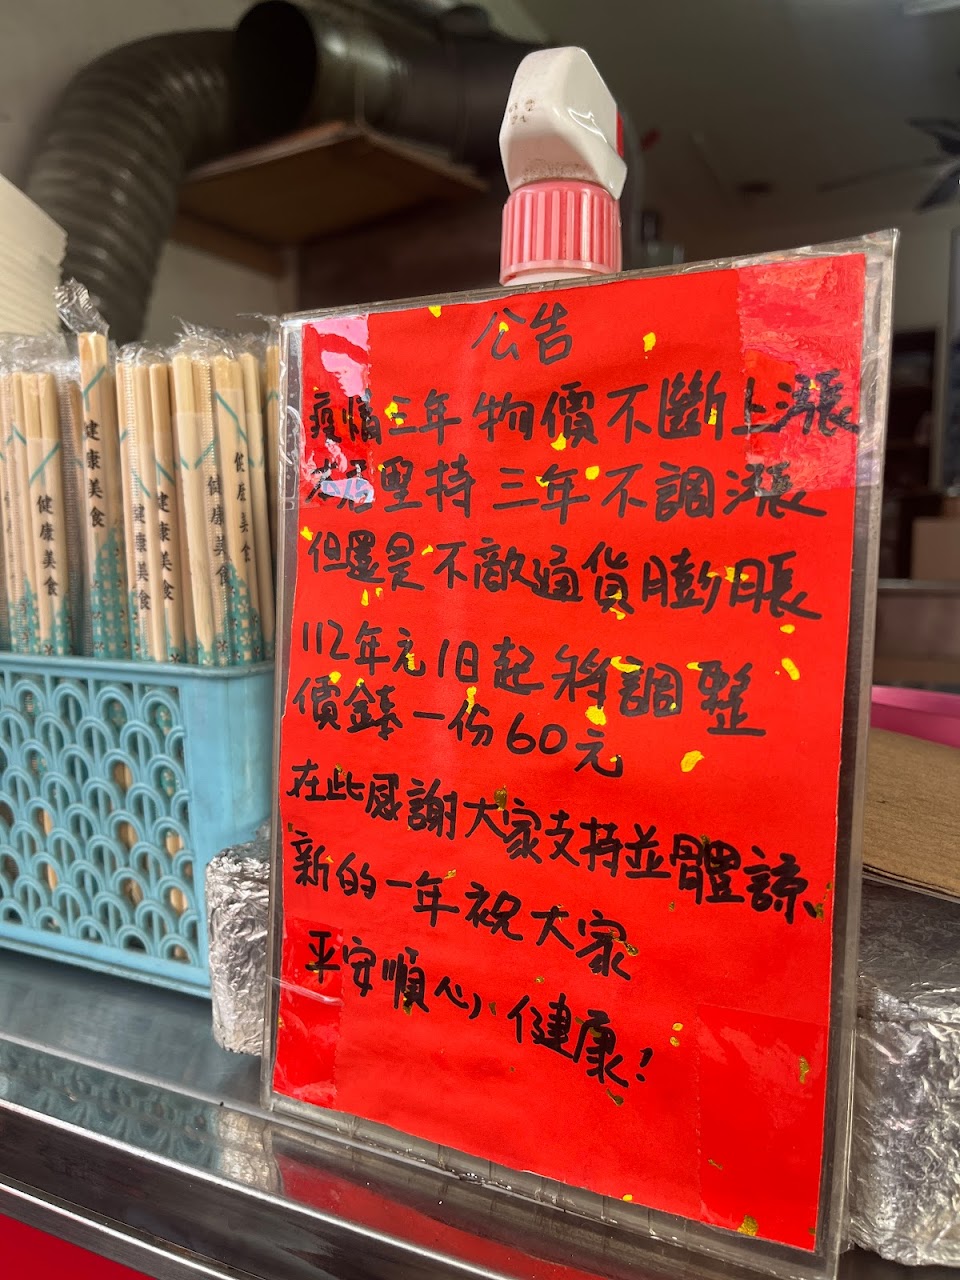 公告
疫情三年物價不斷上漲
本店堅持三年不調漲
但還是不敵通貨膨脹
112年元1日起將調整
價錢一份60元
在此感謝大家支持並體諒
新的一年祝大家
平安順心健康!
健康美食
健康美食
健康美食
健康美食
健康美食
健康美食